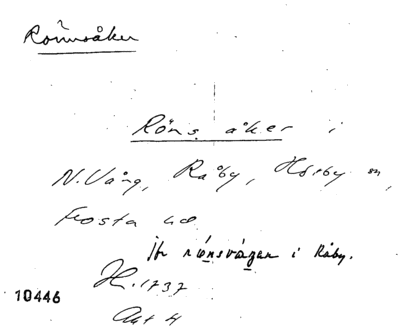 Rönnsåker
Röns åker i
N. Vång, Råby, Hörby sn,
Frosta hd
Jfr rönsvägen i Råby.
H. 1737
10446
Akt 4